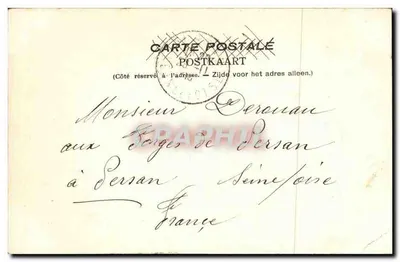 CARTE POSTALE
POSTKAART
(Côté réservé à l'adresse. — Zijde voor het adres alleen.)
Monsieur Derouau
aux Forges de Persan
à Persan Seine/oise
France